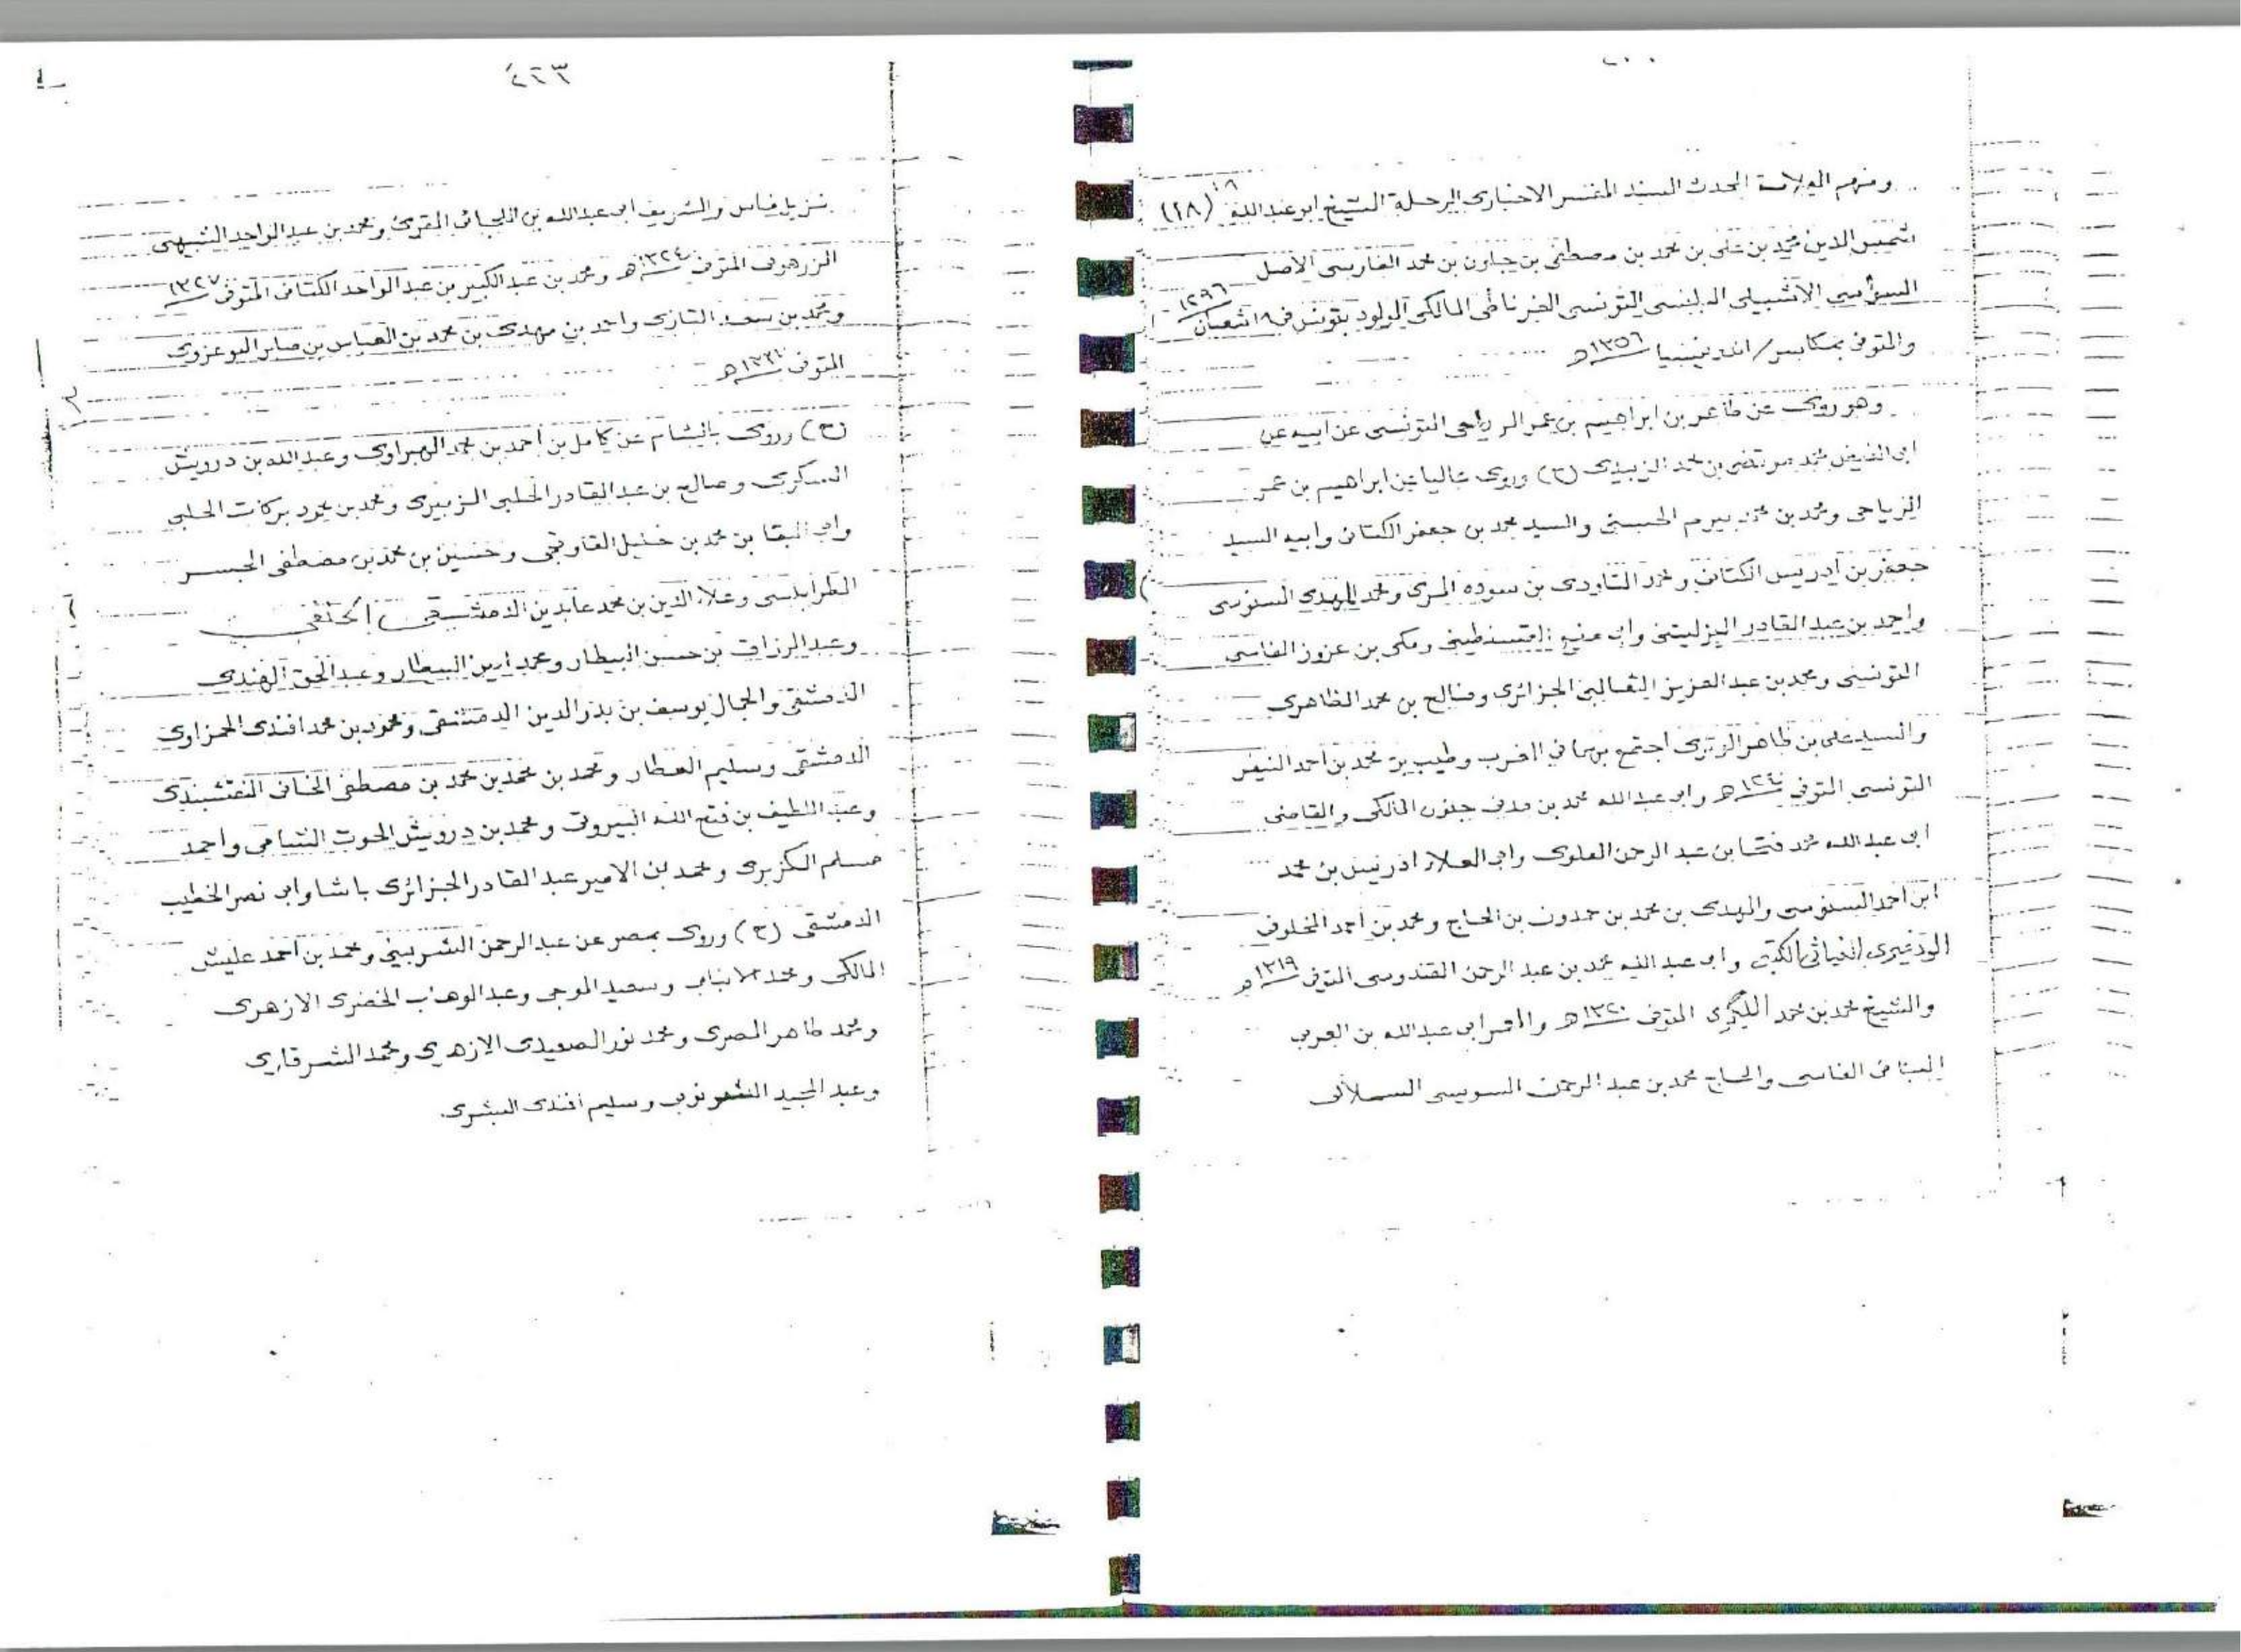 ومنهم العلامة المحدث المسند المفسر الاخبارى الرحلة الشيخ ابو عبد الله (٢٨)
شمس الدين محمد بن على بن محمد بن مصطفى بن جباون بن محمد الفارسى الأصل
السوسي الاشبيلى البلنسى التونسى الغرناطى المالكى المولود بتونس فى ١٨ شعبان ١٢٩٦
والمتوفى بمكاسر/اندنيسيا ١٣٥٦هـ
وهو روى عن طاهر بن ابراهيم بن عمر الرياحى التونسى عن ابيه عن
ابى الفيض محمد مرتضى بن محمد الزبيدى (ح) وروى عاليا عن ابراهيم بن عمر
الرياحى ومحمد بن محمد بيرم الحسينى والسيد محمد بن جعفر الكتانى وابيه السيد
جعفر بن ادريس الكتانى ومحمد التاودى بن سوده المرى ومحمد المهدى السنوسى
واحمد بن عبد القادر اليزليتنى وابى القسنطينى ومكى بن عزوز الفاسى
التونسى ومحمد بن عبد العزيز الثعالبى الجزائرى وصالح بن محمد الظاهرى
والسيد على بن ظاهر الوترى اجتمع بهما فى الغرب وطيب بن محمد بن احمد النيفر
التونسى المتوفى ١٣٤٠هـ وابى عبد الله محمد بن مدنى جلنون المالكى والقاضى
ابى عبد الله محمد فتحا بن عبد الرحمن العلوى وابى العلاء ادريس بن محمد
ابن احمد السنوسى والمهدى بن محمد بن حمدون بن الحاج ومحمد بن احمد الخلوفى
الودغيرى الكتبى وابى عبد الله محمد بن عبد الرحمن القندوسى المتوفى ١٣١٩هـ
والشيخ محمد بن محمد المتوفى ١٣٢٠هـ والمعمر ابى عبد الله بن العربى
البنانى الفاسى والحاج محمد بن عبد الرحمن السويسى السملالى
٤٦٣
نزيل فاس والشريف ابى عبد الله بن اللجائى المقرئ ومحمد بن عبد الواحد الشبيهى
الزرهونى المتوفى ١٣٢٤هـ ومحمد بن عبد الكبير بن عبد الواحد الكتانى المتوفى ١٣٢٧
ومحمد بن سعد التازى واحمد بن مهدى بن محمد بن العباس بن صابر البوعزوى
المتوفى
(ح) وروى بالشام عن كامل بن احمد بن محمد الهبراوى وعبد الله بن درويش
السكرى وصالح بن عبد القادر الحلبى الزبيرى ومحمد بن محمود بركات الحلبى
وابى البقا بن محمد بن خليل القاوقجى وحسين بن محمد بن مصطفى الجسر
الطرابلسى وعلاء الدين بن محمد عابدين الدمشقى الحنفى
وعبد الرزاق بن حسن البيطار ومحمد امين البيطار وعبد الحق الهندى
الدمشقى والجمال يوسف بن بدر الدين الدمشقى ومحمود بن محمد افندى الحمزاوى
الدمشقى وسليم العطار ومحمد بن محمد بن محمد بن مصطفى الخانى النقشبندى
وعبد اللطيف بن فتح الله البيروتى ومحمد بن درويش الحوت الشامى واحمد
مسلم الكزبرى ومحمد بن الامير عبد القادر الجزائرى باشا وابى نصر الخطيب
الدمشقى (ح) وروى بمصر عن عبد الرحمن الشربينى ومحمد بن احمد عليش
المالكى ومحمد الانبابى وسعيد الموجى وعبد الوهاب الخضرى الازهرى
ومحمد طاهر المصرى ومحمد نور الصعيدى الازهرى ومحمد الشرقاوى
وعبد المجيد الشرنوبى وسليم افندى البشرى